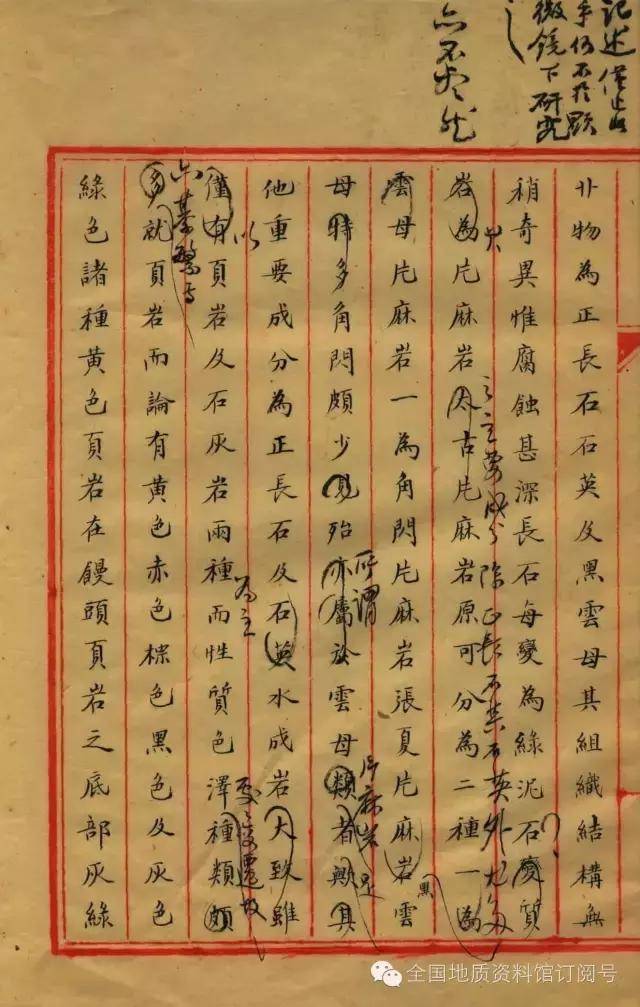 記述僅止
手仍不於顯
微鏡下研究
亦不盡然
廾物為正長石石英及黑雲母其組織結構無
稍奇異惟腐蝕甚深長石每變為綠泥石變質
岩為片麻岩因古片麻岩原可分為二種一為
之主要成分除正長石英石英外尤多
雲母片麻岩一為角閃片麻岩張夏片麻岩雲
黑
母特多角閃頗少見殆亦屬於雲母類者歟其
所謂
片麻岩是
他重要成分為正長石及石英水成岩大致雖
以
為主
僅有頁岩及石灰岩兩種而性質色澤種類頗
之變遷故
亦甚繁
多就頁岩而論有黃色赤色棕色黑色及灰色
綠色諸種黃色頁岩在饅頭頁岩之底部灰綠
全国地质资料馆订阅号